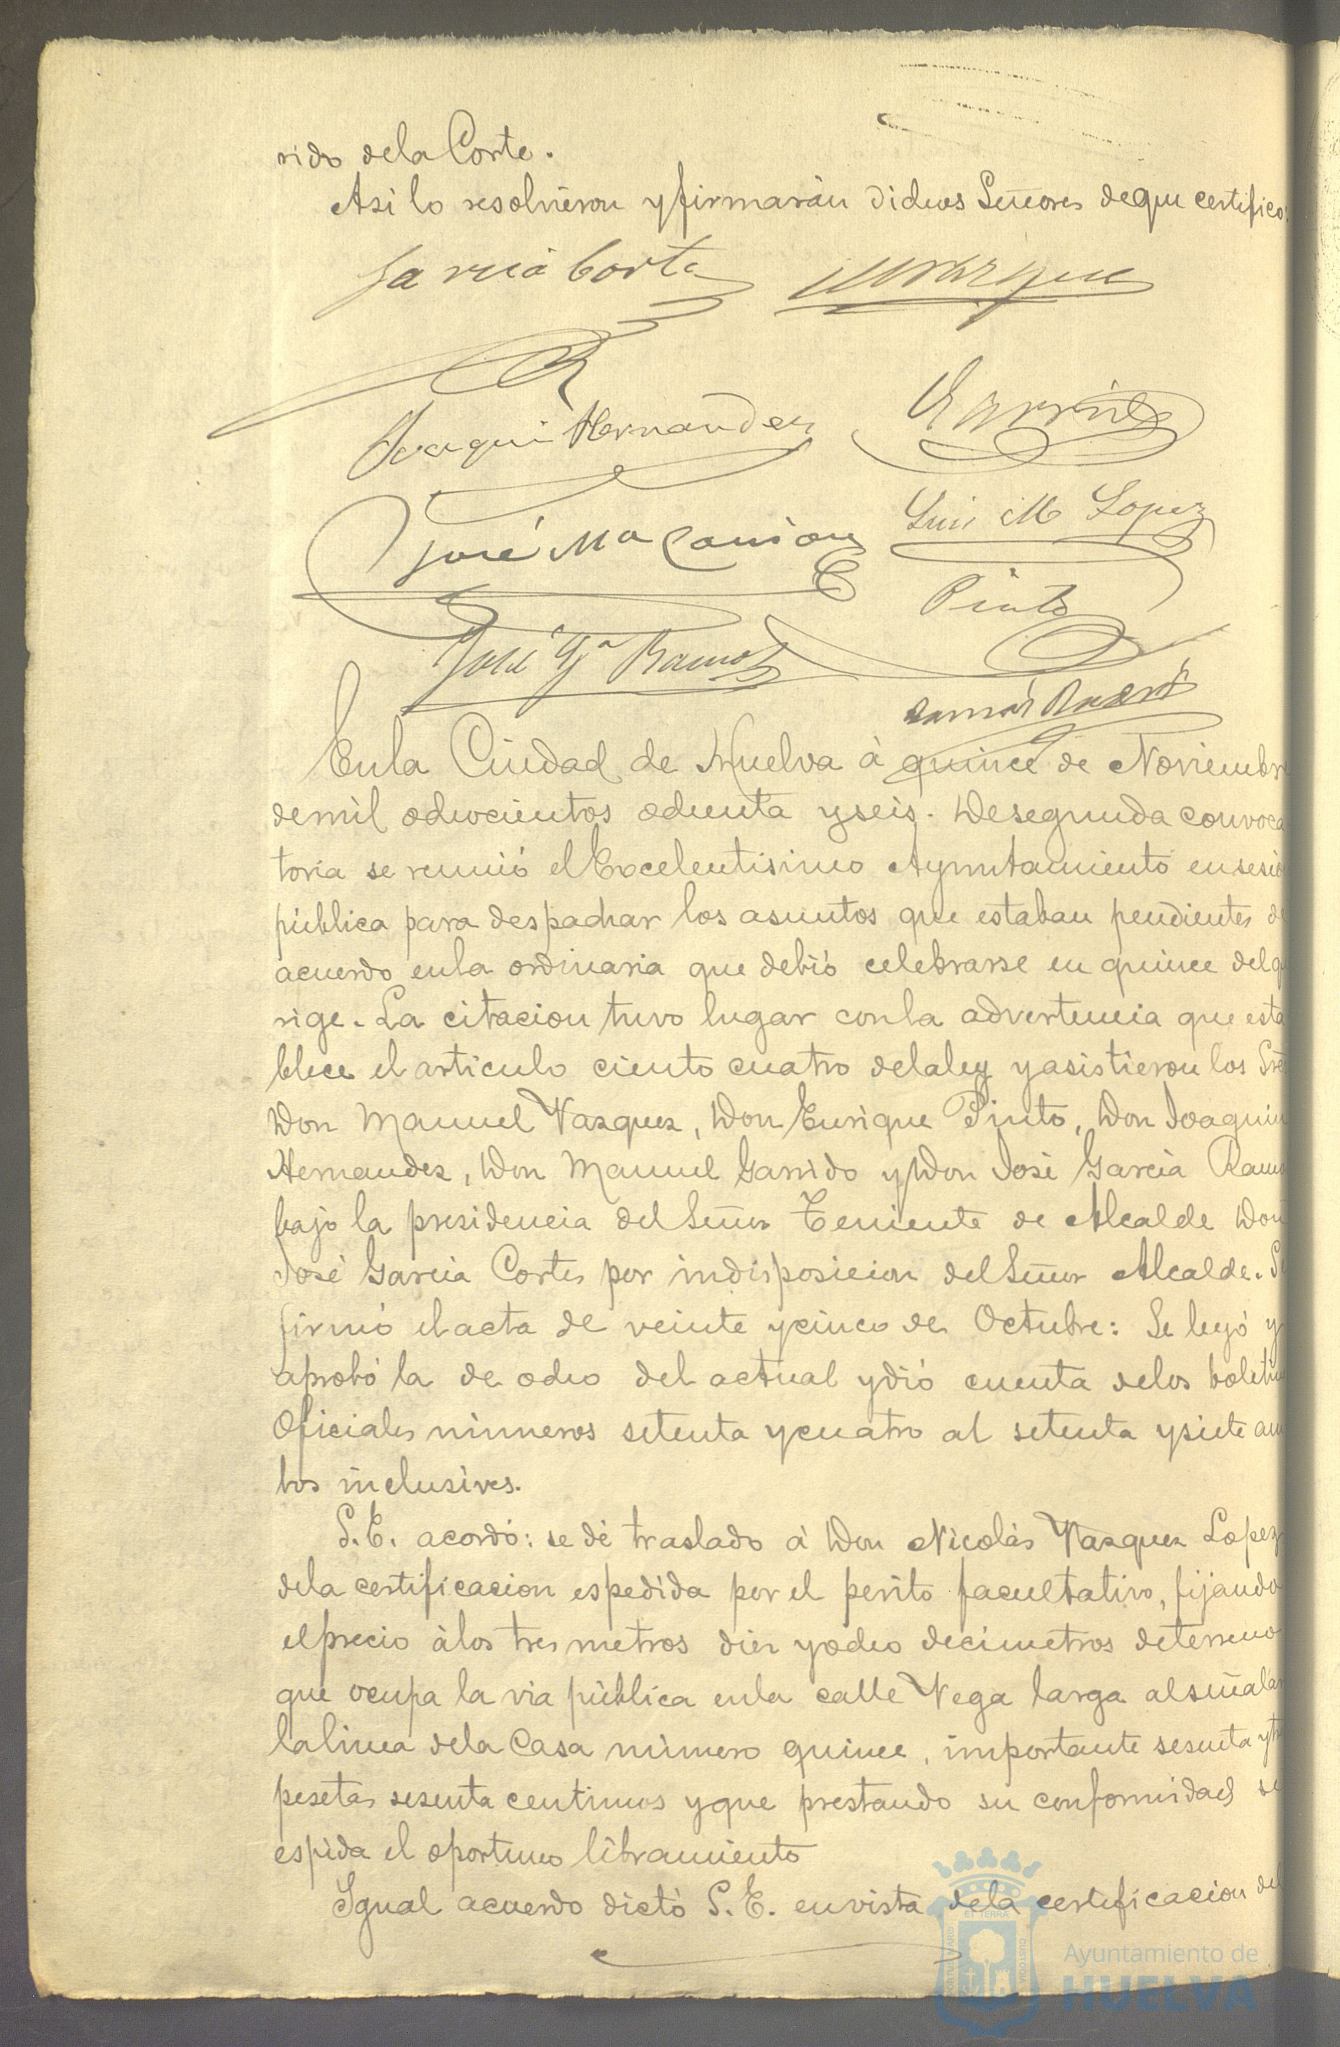 rido dela Corte.
Asi lo resolvieron y firmarán dichos Señores de que certifico.
Garcia Cortes Vazquez
Joaquin Hernandez Garrido
José Ma Luis M Lopez
Pinto
José Ga Ramos
Enla Ciudad de Huelva á quince de Noviembre
demil ochocientos ochenta y seis. De segunda convoca
toria se reunió el Excelentisimo Ayuntamiento en sesió
pública para despachar los asuntos que estaban pendientes de
acuerdo enla ordinaria que debió celebrarse en quince del q
rige. La citacion tuvo lugar conla advertencia que esta
blece el articulo ciento cuatro dela ley y asistieron los Sres
Don Manuel Vazquez, Don Enrique Pinto, Don Joaquin
Hernandez, Don Manuel Garrido y Don José Garcia Ramo
bajo la presidencia del Señor Teniente de Alcalde Don
José Garcia Cortes por indisposicion del Señor Alcalde. Se
firmó el acta de veinte y cinco de Octubre: Se leyó y
aprobó la de ocho del actual y dió cuenta delos boletin
Oficiales números setenta y cuatro al setenta y siete am
bos inclusives.
S.E. acordó: se dé traslado á Don Nicolás Vazquez Lopez
dela certificacion espedida por el perito facultativo, fijando
el precio álos tres metros diez y ocho decimetros de terreno
que ocupa la via pública enla calle Vega larga al señalar
la linea dela Casa número quince, importante sesenta y tr
pesetas sesenta centimos y que prestando su conformidad se
espida el oportuno libramiento
Igual acuerdo dictó S.E. en vista dela certificacion del
Ayuntamiento de
HUELVA